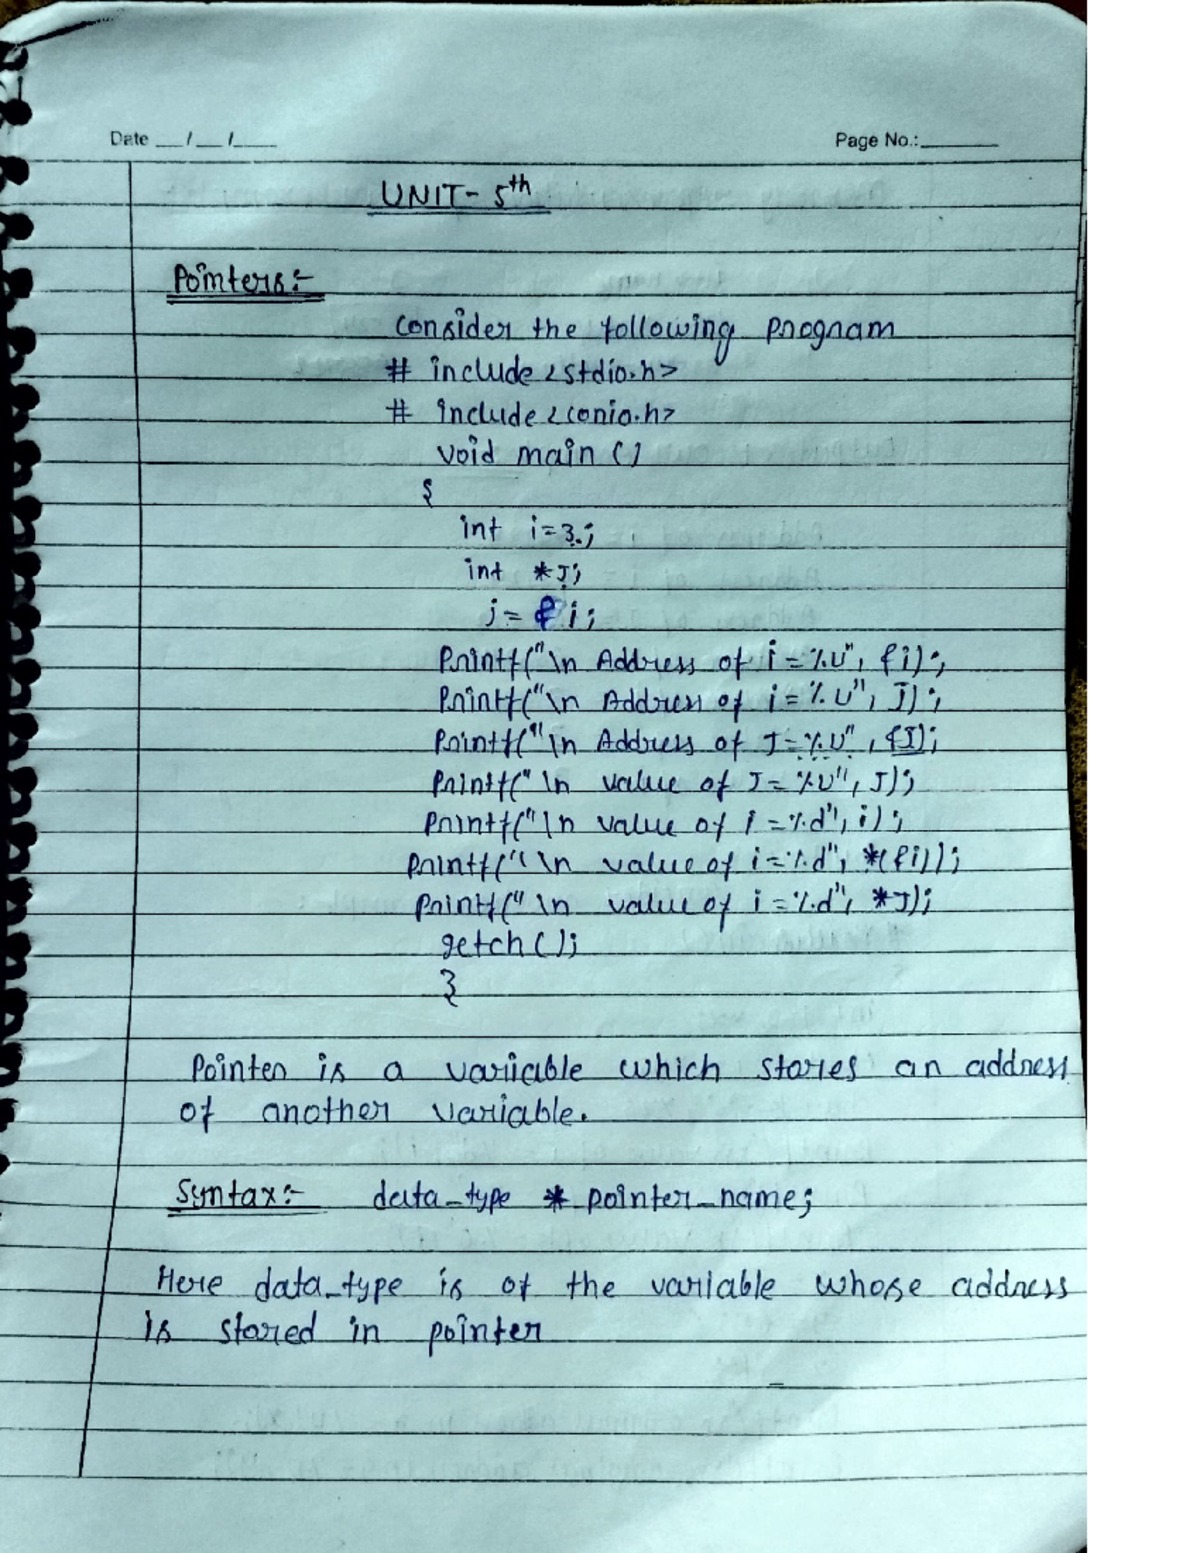 Date __/__/____ Page No.:______
UNIT- 5th
Pointers:-
Consider the following program
# include <stdio.h>
# include <conio.h>
void main ()
{
int i=3;
int *J;
j= &i;
Printf("\n Address of i = %u", &i);
Printf("\n Address of i = %u", J);
Printf("\n Address of J = %u", &J);
Printf("\n value of J = %u", J);
Printf("\n value of i = %d", i);
Printf("\n value of i = %d", *(&i));
Printf("\n value of i = %d", *J);
getch();
}
Pointer is a variable which stores an address
of another variable.
Syntax:- data_type * pointer_name;
Here data_type is of the variable whose address
is stored in pointer